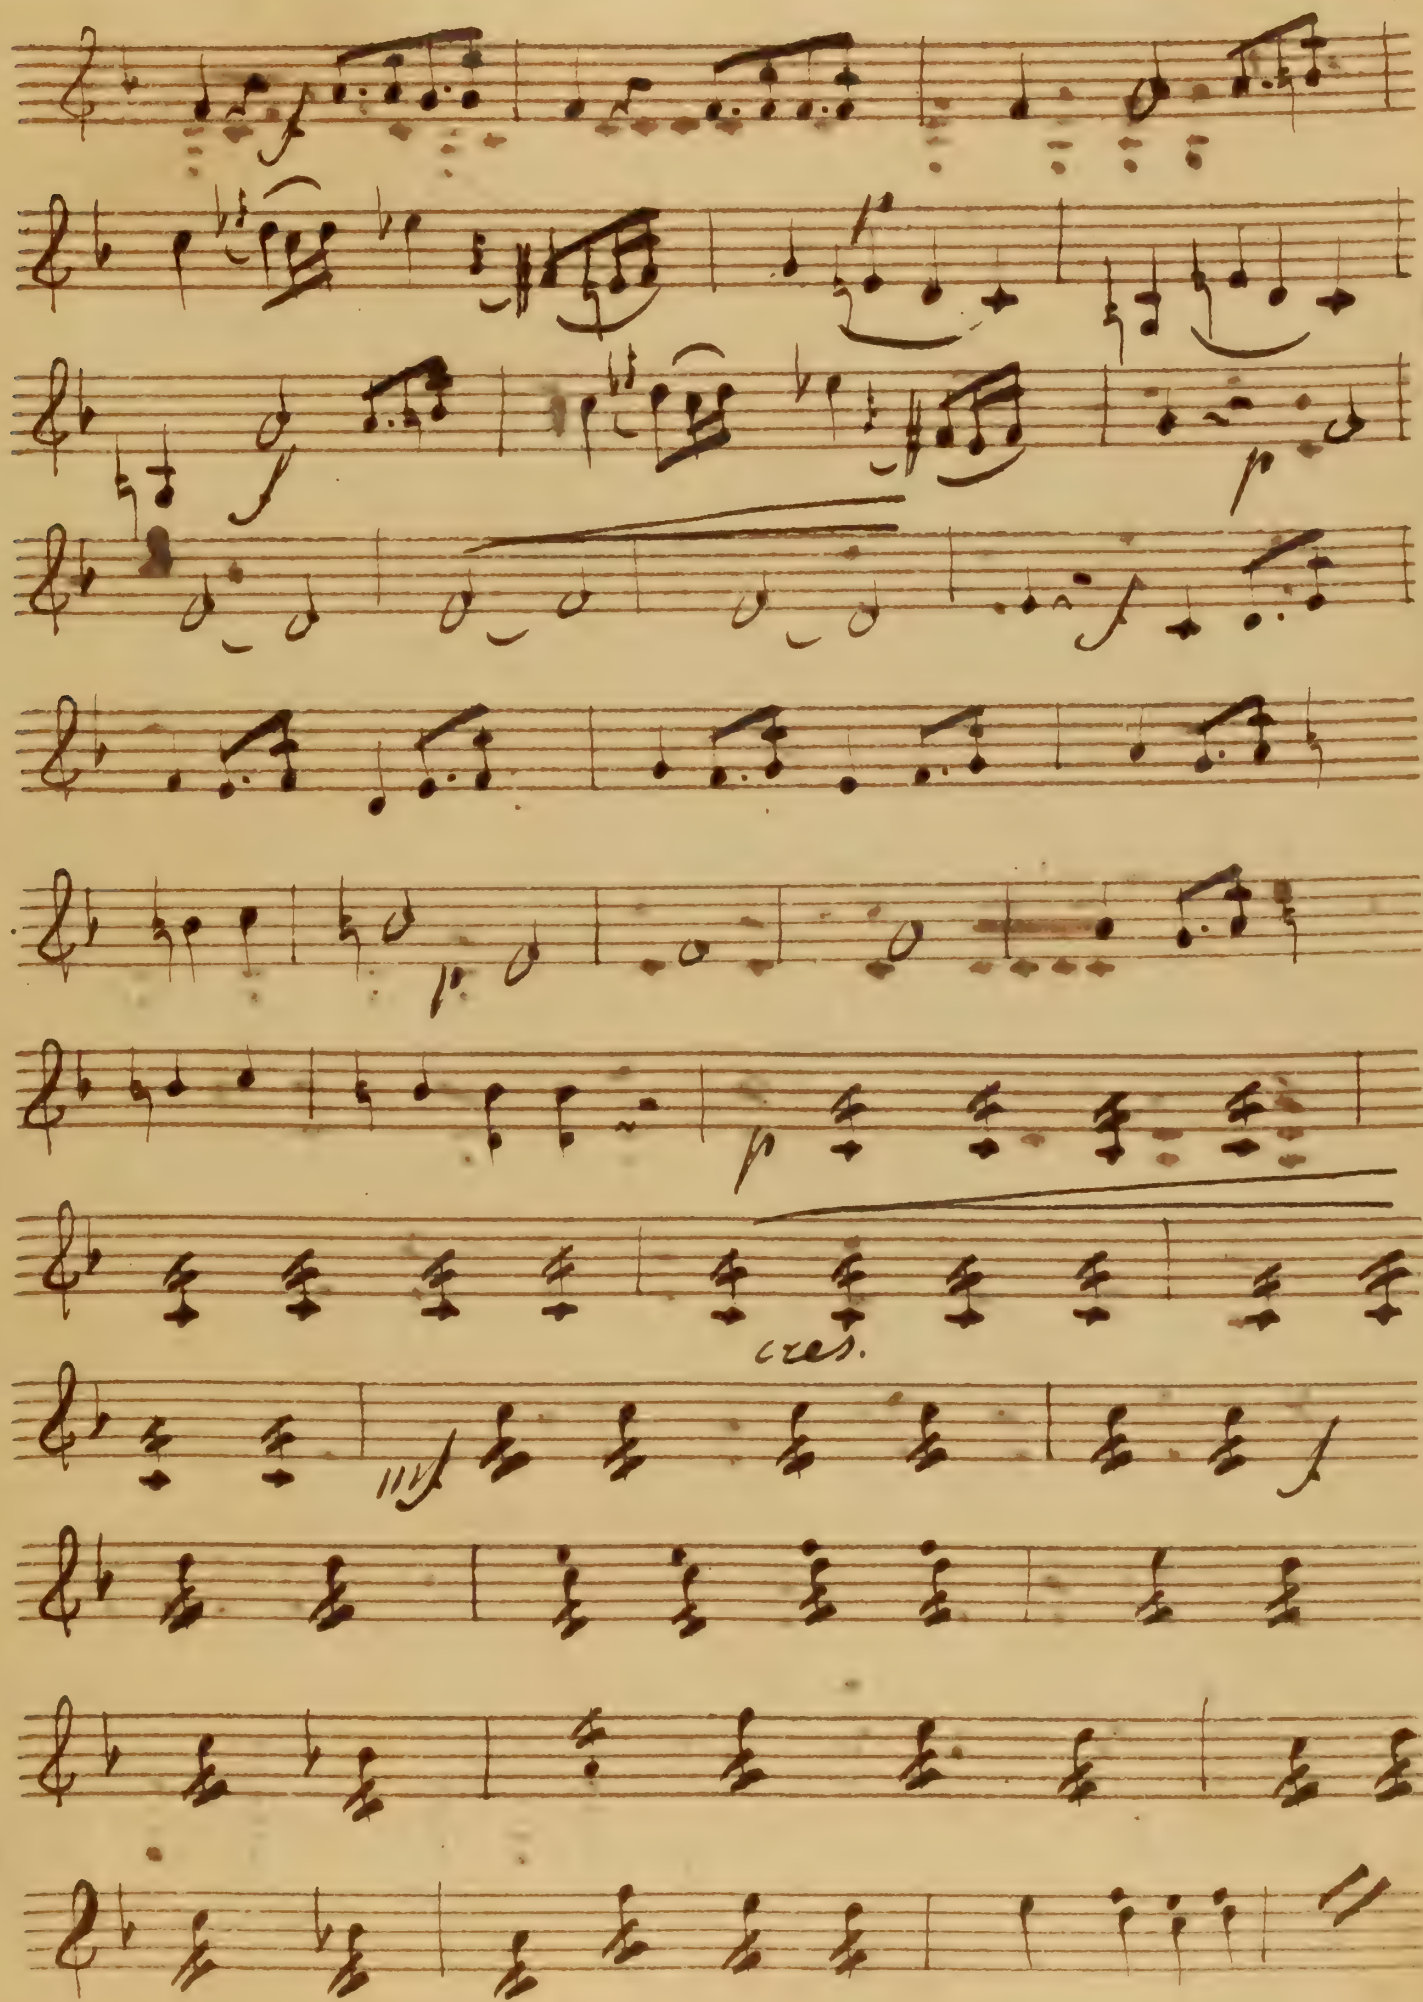 f
p
f
p
f
p
p
cres.
mf
f